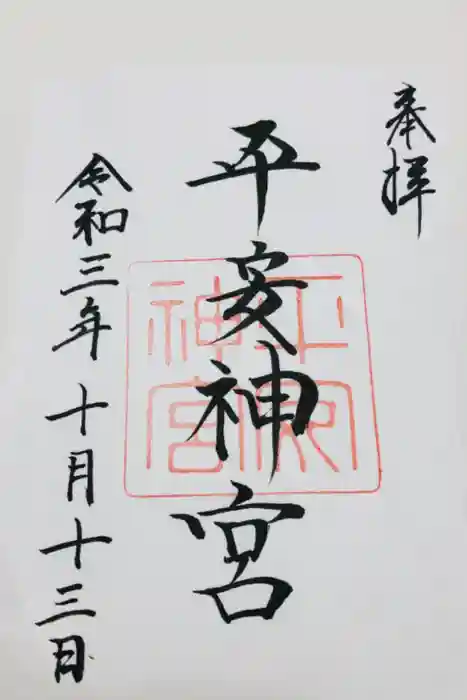 奉拝
平安神宮
平安
神宮
令和三年十月十三日